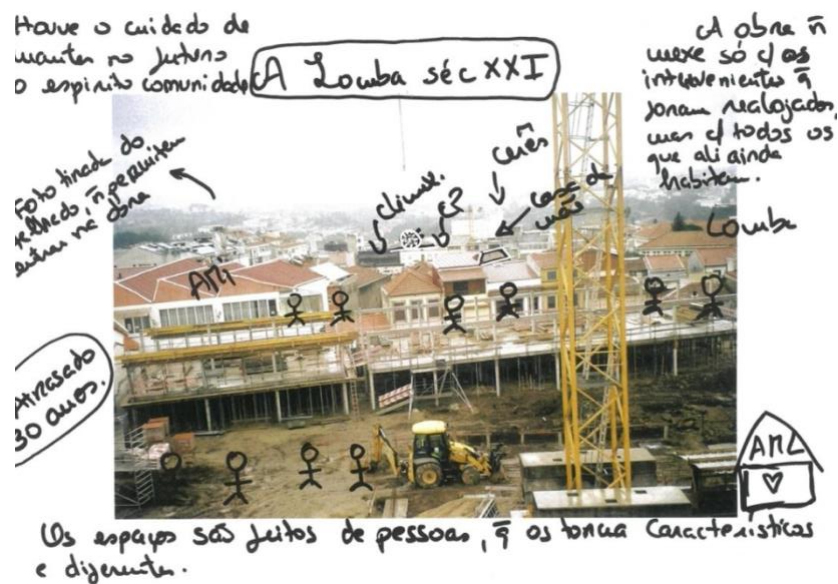 Houve o cuidado de
manter no futuro
o espirito comunidade
A Lomba séc XXI
A obra n̄
mexe só c/ os
intervenientes q̄
foram realojados,
mas c/ todos os
que ali ainda
habitam.
Foto tirada do
telhado, n̄ permitem
entrar na obra
clinica.
casa da
mãe
Lomba
AMI
Atrasado
30 anos.
AML
Os espaços são feitos de pessoas, q̄ os torna Característicos
e diferentes.